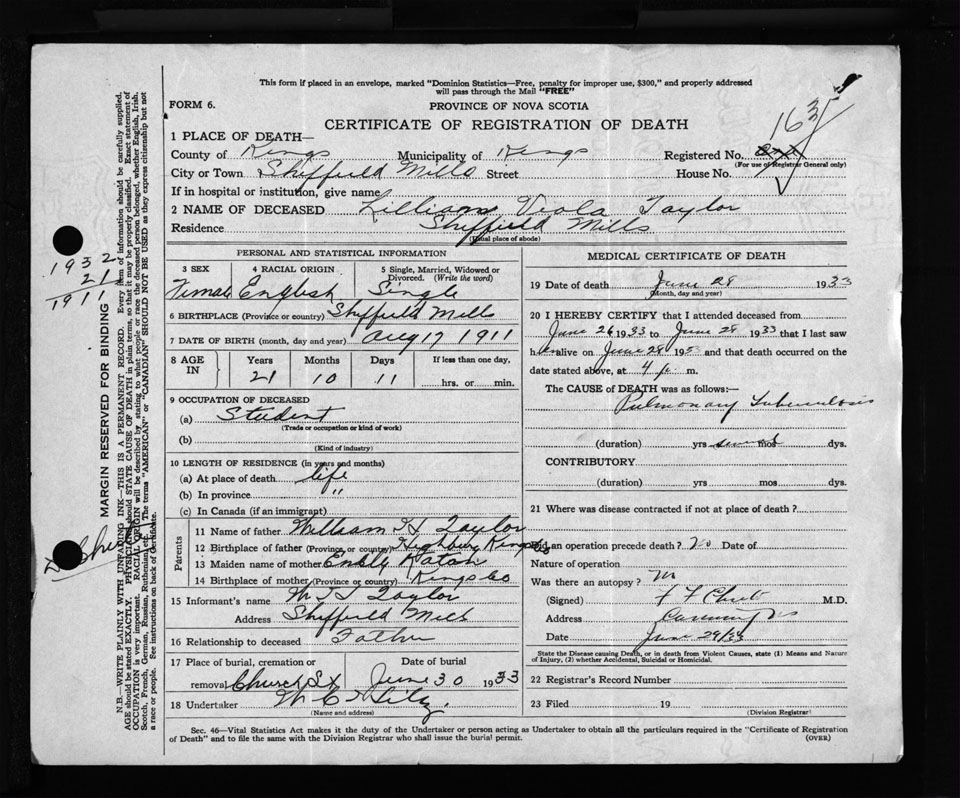 This form if placed in an envelope, marked "Dominion Statistics—Free, penalty for improper use, $300," and properly addressed
will pass through the Mail "FREE"
FORM 6.
PROVINCE OF NOVA SCOTIA
163
CERTIFICATE OF REGISTRATION OF DEATH
1 PLACE OF DEATH—
County of Kings Municipality of Kings Registered No.
(For use of Registrar General only)
City or Town Sheffield Mills Street House No.
If in hospital or institution, give name
2 NAME OF DECEASED Lillian Viola Taylor
Residence Sheffield Mills
(Usual place of abode)
PERSONAL AND STATISTICAL INFORMATION
3 SEX 4 RACIAL ORIGIN 5 Single, Married, Widowed or
Divorced. (Write the word)
Female English Single
6 BIRTHPLACE (Province or country) Sheffield Mills
7 DATE OF BIRTH (month, day and year) Aug 17 1911
8 AGE IN Years Months Days If less than one day,
21 10 11 hrs. or min.
9 OCCUPATION OF DECEASED
(a) Student
(Trade or occupation or kind of work)
(b)
(Kind of industry)
10 LENGTH OF RESIDENCE (in years and months)
(a) At place of death life
(b) In province "
(c) In Canada (if an immigrant)
Parents
11 Name of father William H Taylor
12 Birthplace of father (Province, or country)
13 Maiden name of mother
14 Birthplace of mother (Province or country) Kings Co
15 Informant's name Taylor
Address Sheffield Mills
16 Relationship to deceased Father
17 Place of burial, cremation or Date of burial
removal Church St June 30 1933
18 Undertaker
(Name and address)
MEDICAL CERTIFICATE OF DEATH
19 Date of death June 28 1933
(Month, day and year)
20 I HEREBY CERTIFY that I attended deceased from
June 26 1933 to June 28 1933 that I last saw
h alive on June 28 19 and that death occurred on the
date stated above, at 4 p. m.
The CAUSE of DEATH was as follows:—
Pulmonary Tuberculosis
(duration) yrs several mos dys.
CONTRIBUTORY
(duration) yrs mos dys.
21 Where was disease contracted if not at place of death?
Did an operation precede death? No Date of
Nature of operation
Was there an autopsy? no
(Signed) M.D.
Address
Date June 29/33
State the Disease causing Death, or in death from Violent Causes, state (1) Means and Nature
of Injury, (2) whether Accidental, Suicidal or Homicidal.
22 Registrar's Record Number
23 Filed 19
(Division Registrar)
Sec. 46—Vital Statistics Act makes it the duty of the Undertaker or person acting as Undertaker to obtain all the particulars required in the "Certificate of Registration
of Death" and to file the same with the Division Registrar who shall issue the burial permit.
(OVER)
1932
21
1911
MARGIN RESERVED FOR BINDING
N.B.—WRITE PLAINLY WITH UNFADING INK—THIS IS A PERMANENT RECORD. Every item of information should be carefully supplied.
AGE should be stated EXACTLY. PHYSICIANS should STATE CAUSE OF DEATH in plain terms, so that it may be properly classified. Exact statement of
OCCUPATION is very important. RACIAL ORIGIN will be described by stating to what people or race the deceased person belonged, whether English, Irish,
Scotch, French, German, Russian, Ruthenian, etc. The terms "AMERICAN" or "CANADIAN" SHOULD NOT BE USED as they express citizenship but not
a race or people. See instructions on back of certificate.